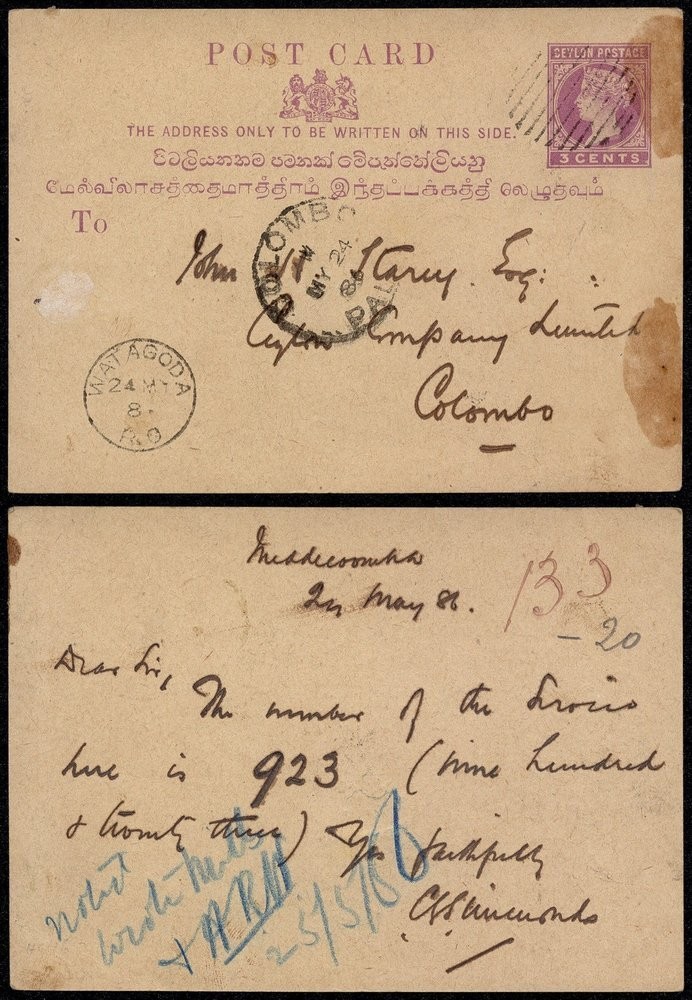 POST CARD
CEYLON POSTAGE
3 CENTS
THE ADDRESS ONLY TO BE WRITTEN ON THIS SIDE.
மேல்விலாசத்தைமாத்திரம் இந்தப்பக்கத்தி லெழுதவும்
To
COLOMBO
MY 24
86
PAI
John H Starey. Esq:
Ceylon Company Limited
Colombo
WATAGODA
24 MY
8
P.O
Meddecoombra
24 May 86.
133
- 20
Dear Sir,
The number of the Sirocco
here is 923 (nine hundred
& twenty three) Yrs faithfully
noted
wrote
& ARH
25/5/86